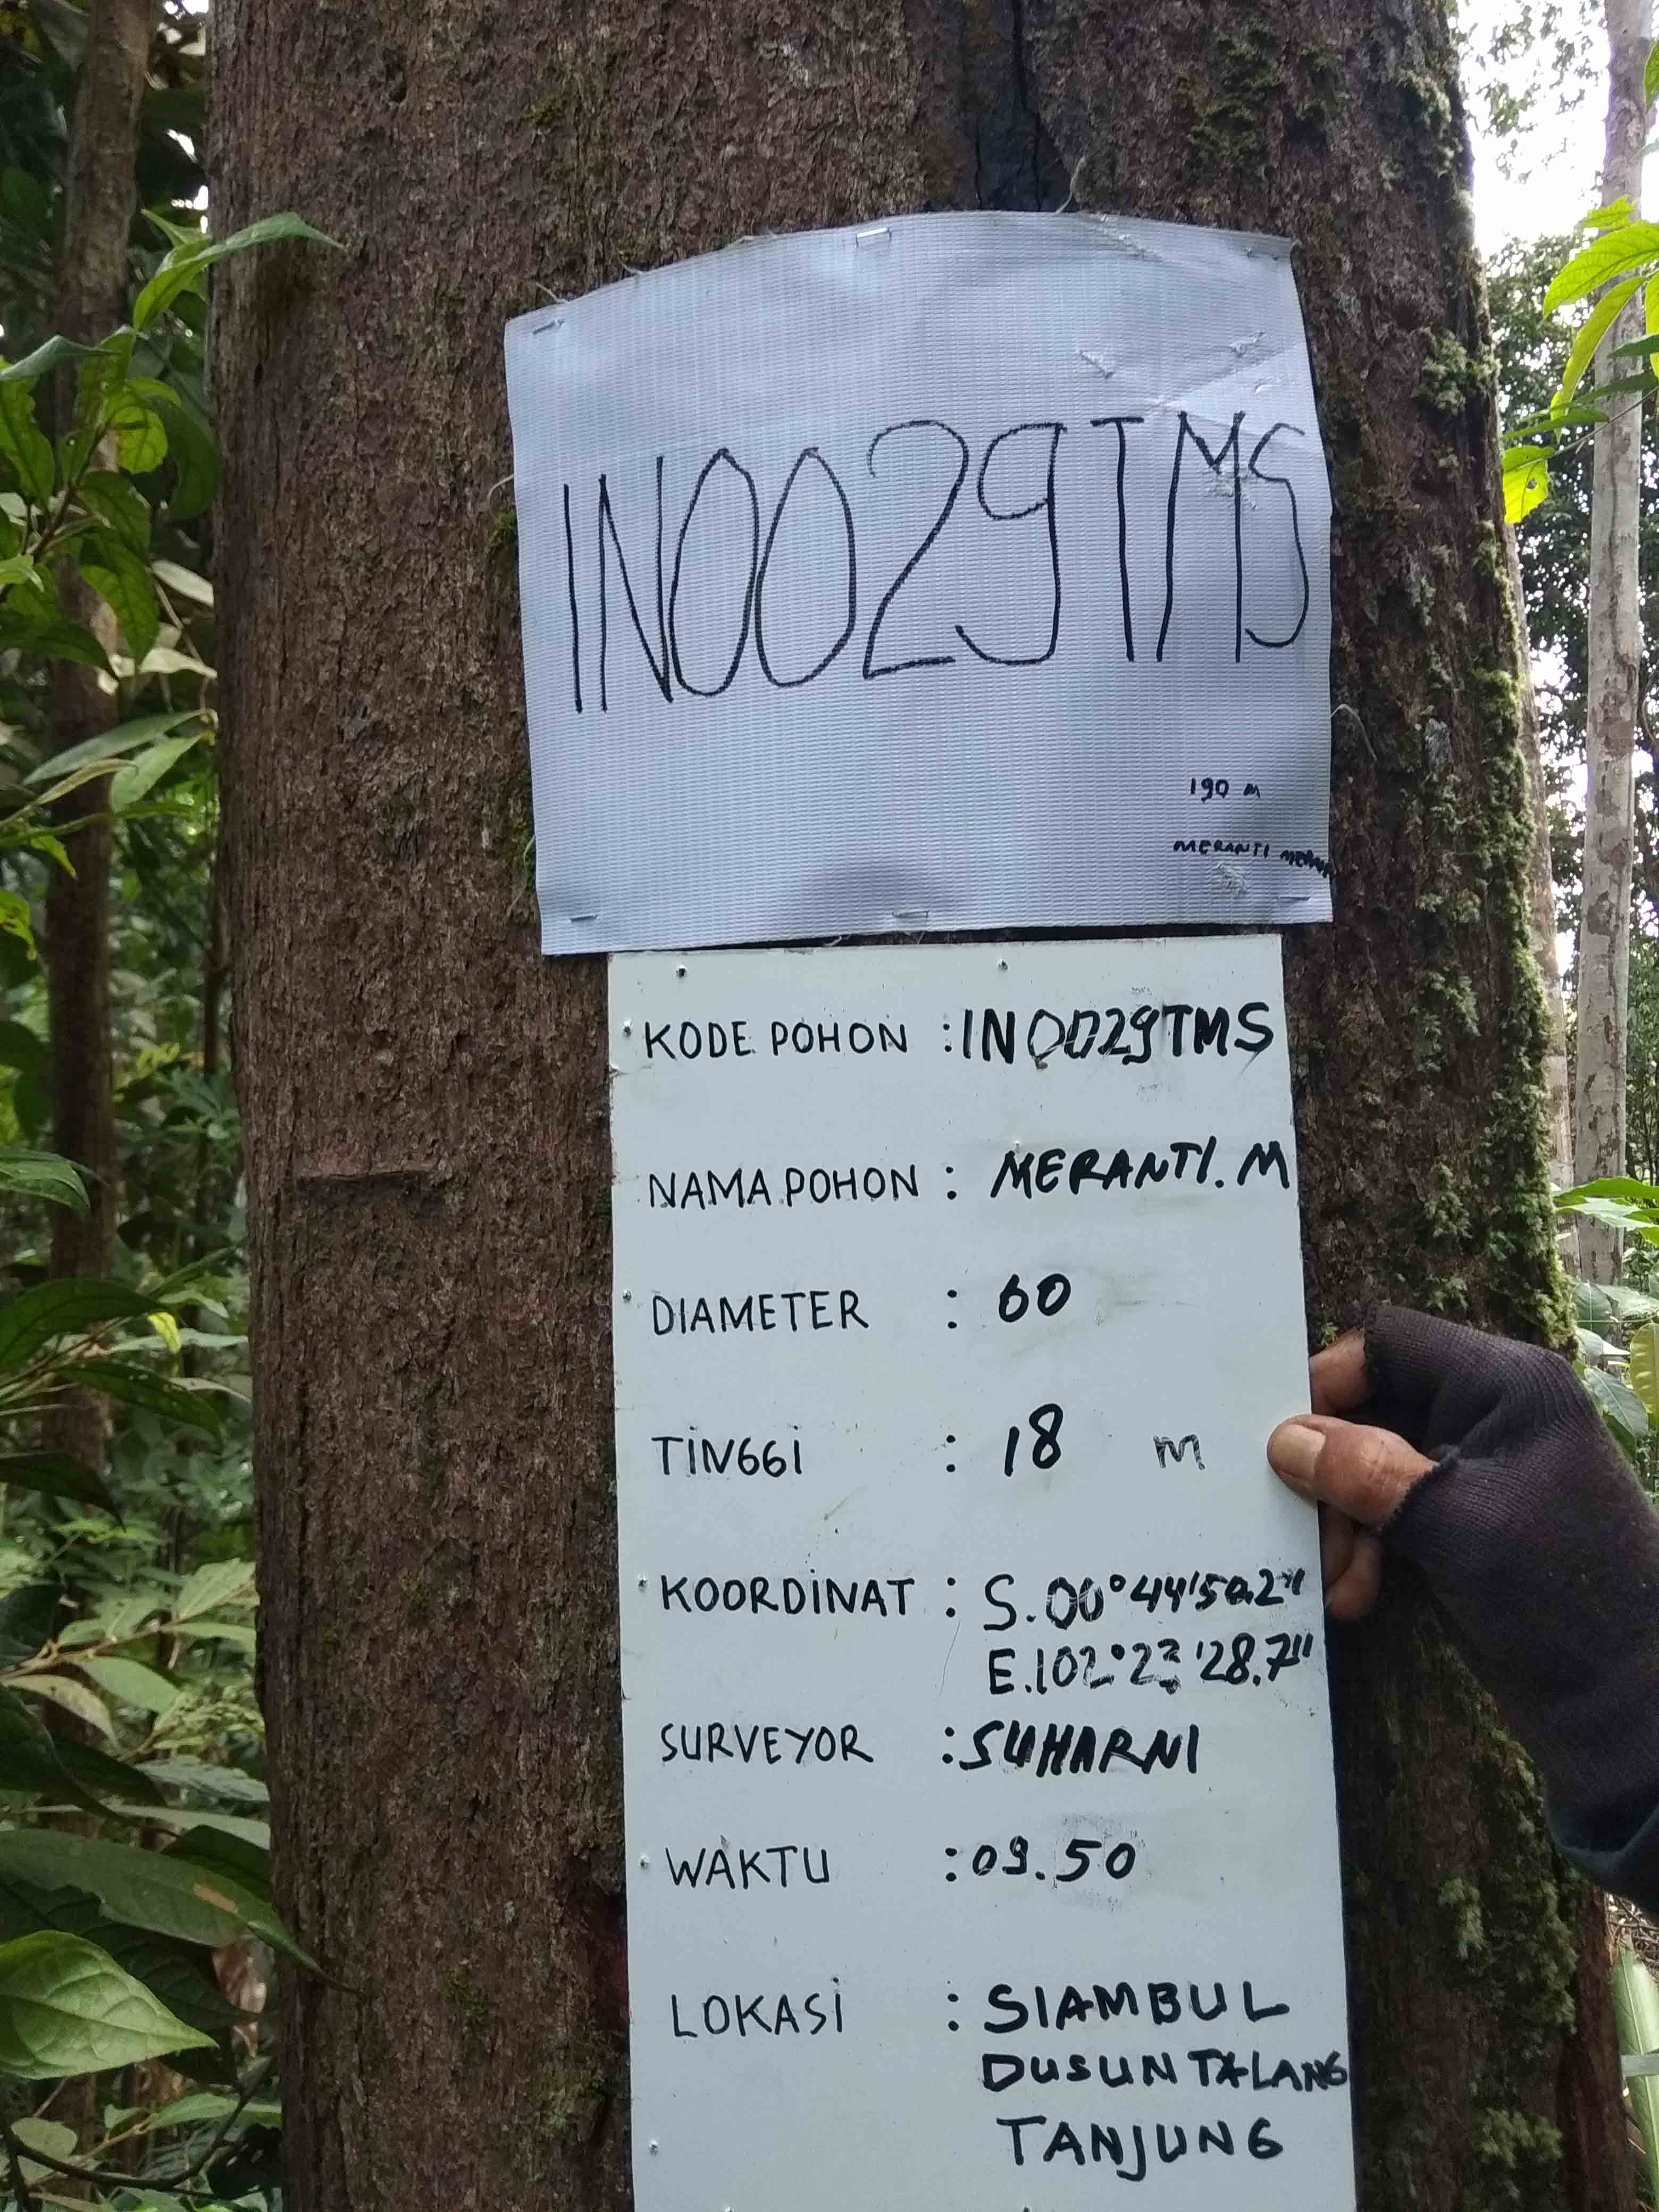 IN0029TMS
190 M
MERANTI
KODE POHON : IN0029TMS
NAMA POHON : MERANTI. M
DIAMETER : 60
TINGGI : 18 m
KOORDINAT : S. 00° 44' 50.2"
E. 102° 23 '28.7"
SURVEYOR : SUHARNI
WAKTU : 09.50
LOKASI : SIAMBUL
DUSUN TALANG
TANJUNG